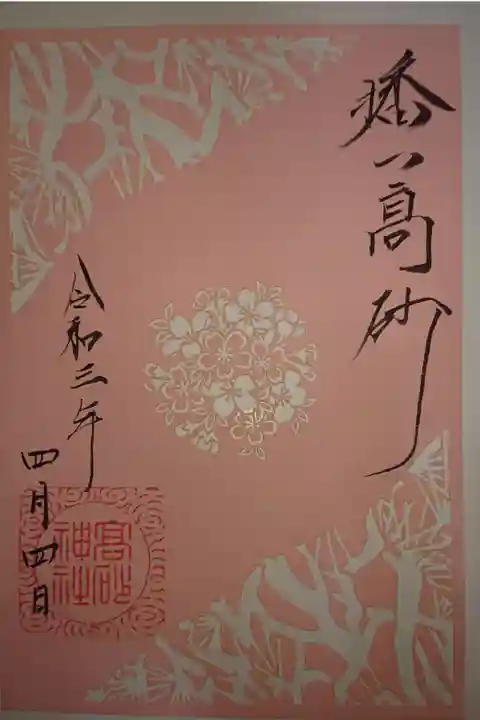 播州高砂
令和三年
四月四日
高砂神社